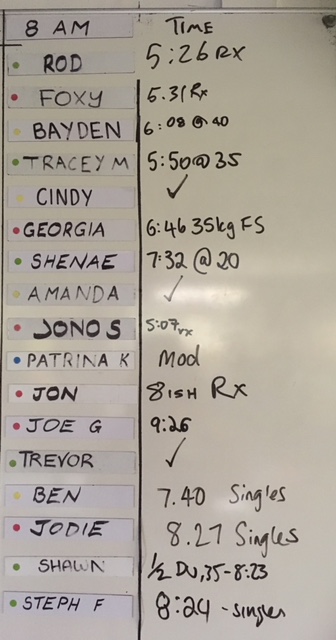 8 AM TIME
ROD 5:26 RX
FOXY 5.31 Rx
BAYDEN 6:08 @ 40
TRACEY M 5:50@35
CINDY ✓
GEORGIA 6:46 35kg FS
SHENAE 7:32 @ 20
AMANDA ✓
JONO S 5:07 rx
PATRINA K Mod
JON 8ISH RX
JOE G 9:26
TREVOR ✓
BEN 7.40 Singles
JODIE 8.27 Singles
SHAWN 1/2 DU, 35-8:23
STEPH F 8:24 - singles